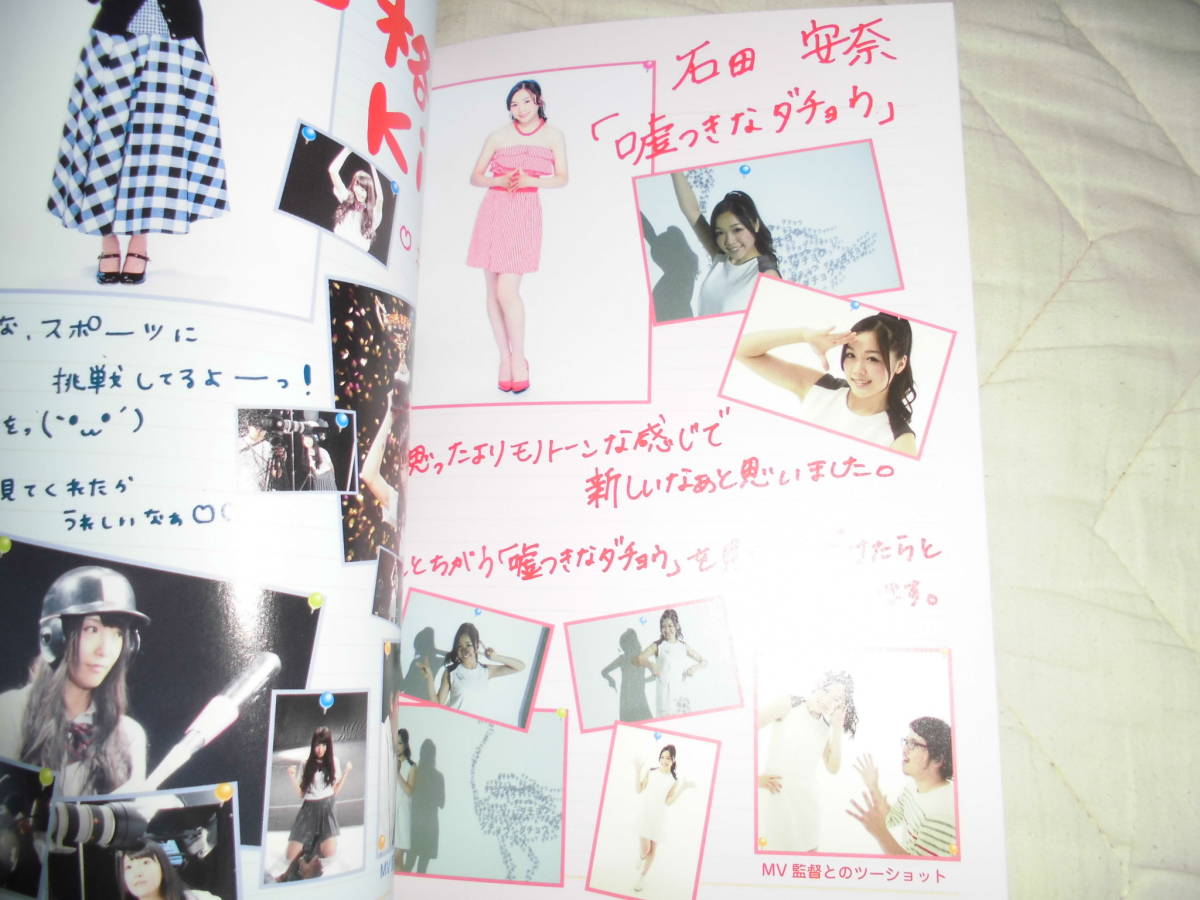 格
Ki
な、スポーツに
挑戦してるよーっ!
をっ(`•ω•´)
見てくれたか
うれしいなぁ♡♡
石田 安奈
「嘘つきなダチョウ」
思ったよりモノトーンな感じで
新しいなぁと思いました。
とちがう「嘘つきなダチョウ」を
けたらと
す。
MV 監督とのツーショット
MV